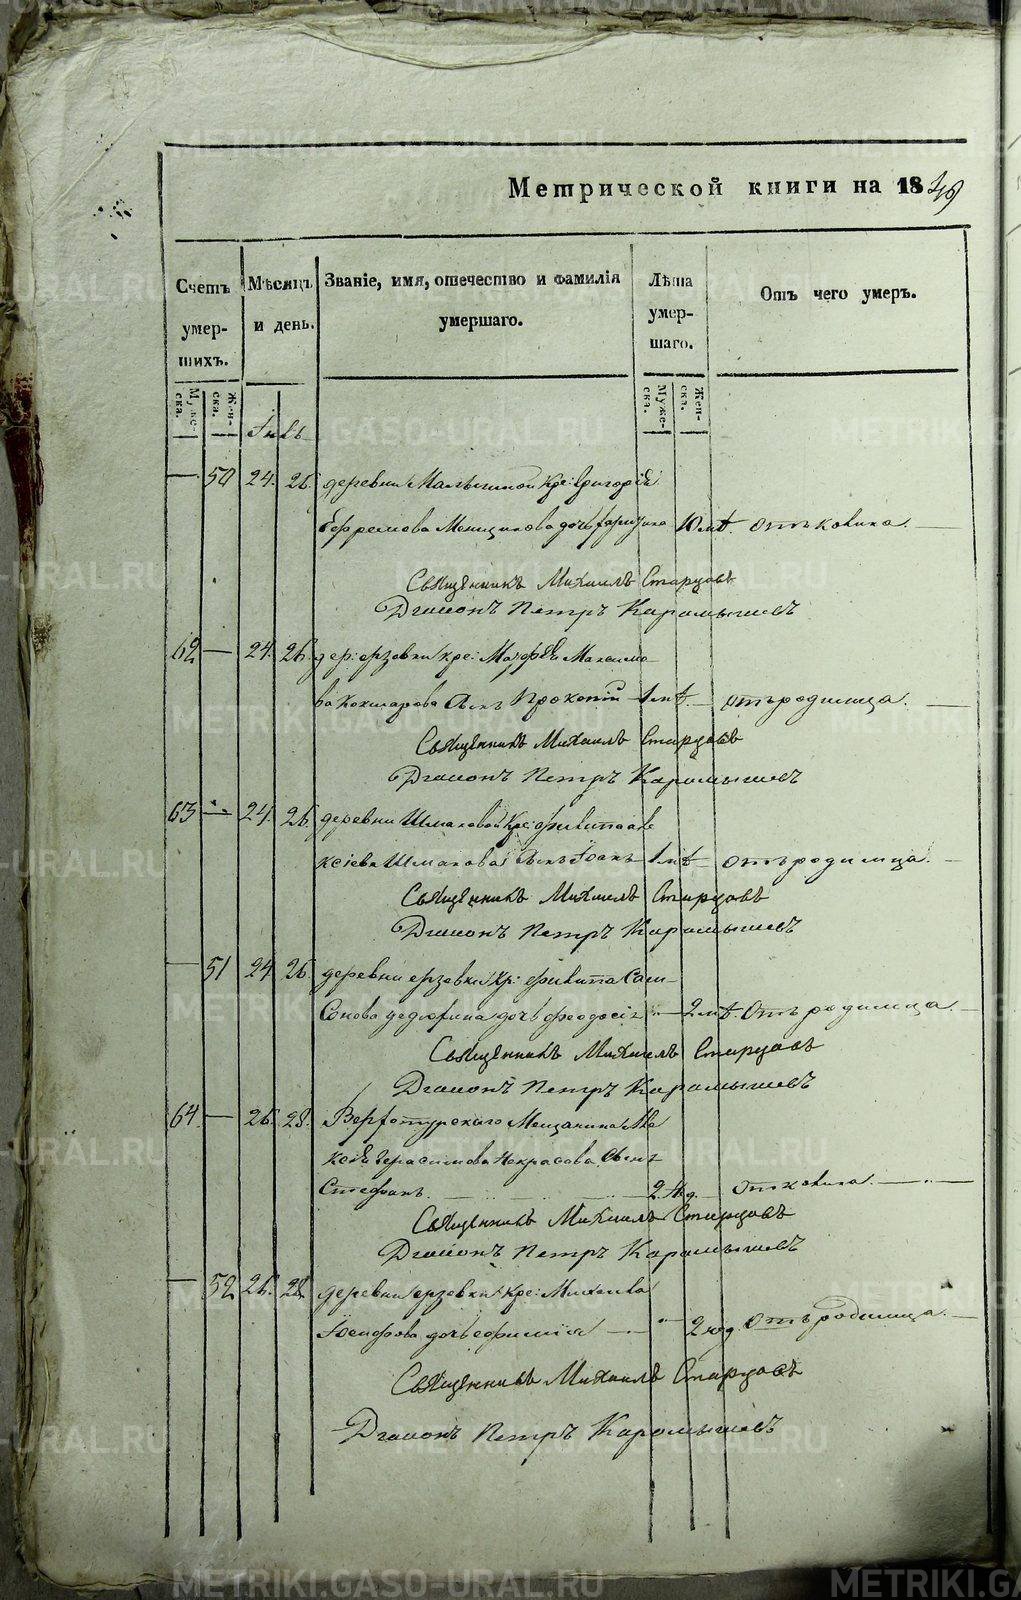 Метрической книги на 1849
Счетъ умершихъ.
Мѣсяцъ и день.
Званіе, имя, отечество и фамилія умершаго.
Лѣта умершаго.
Отъ чего умеръ.
Мужеска.
Женска.
Мужеска.
Женска.
— 50 24. 26. деревни крѣ: Григорія
Ефремова дочь 10 лѣ. отъ —
Священникъ Михаилъ Старцовъ
Діаконъ Петръ Карамышевъ
62 — 24. 26. дер: ерзовки кре: Максимо
ва сынъ Прокопій 1 лѣ. — отъ родимца. —
Священникъ Михаилъ Старцовъ
Діаконъ Петръ Карамышевъ
63 — 24. 26. деревни Шмаковой Кре: филипа але
ксіева Шмакова сынъ Іоанъ 1 лѣ — отъ родимца. —
Священникъ Михаилъ Старцовъ
Діаконъ Петръ Карамышевъ
— 51 24 26. деревни ерзовки Кр: филипа Сам
сонова дедюхина дочь феодосія " — 2 лѣ. отъ родимца —
Священникъ Михаилъ Старцовъ
Діаконъ Петръ Карамышевъ
64. — 26. 28. Верхотурскаго Мещанина Але
ксѣя Герасимова Некрасова сынъ
Стефанъ. 2. —
Священникъ Михаилъ Старцовъ
Діаконъ Петръ Карамышевъ
— 52 26. 28. деревни ерзовки кре: Михаила
дочь ефимія — " 2 год. отъ родимца. —
Священникъ Михаилъ Старцовъ
Діаконъ Петръ Карамышевъ
METRIKI.GASO-URAL.RU